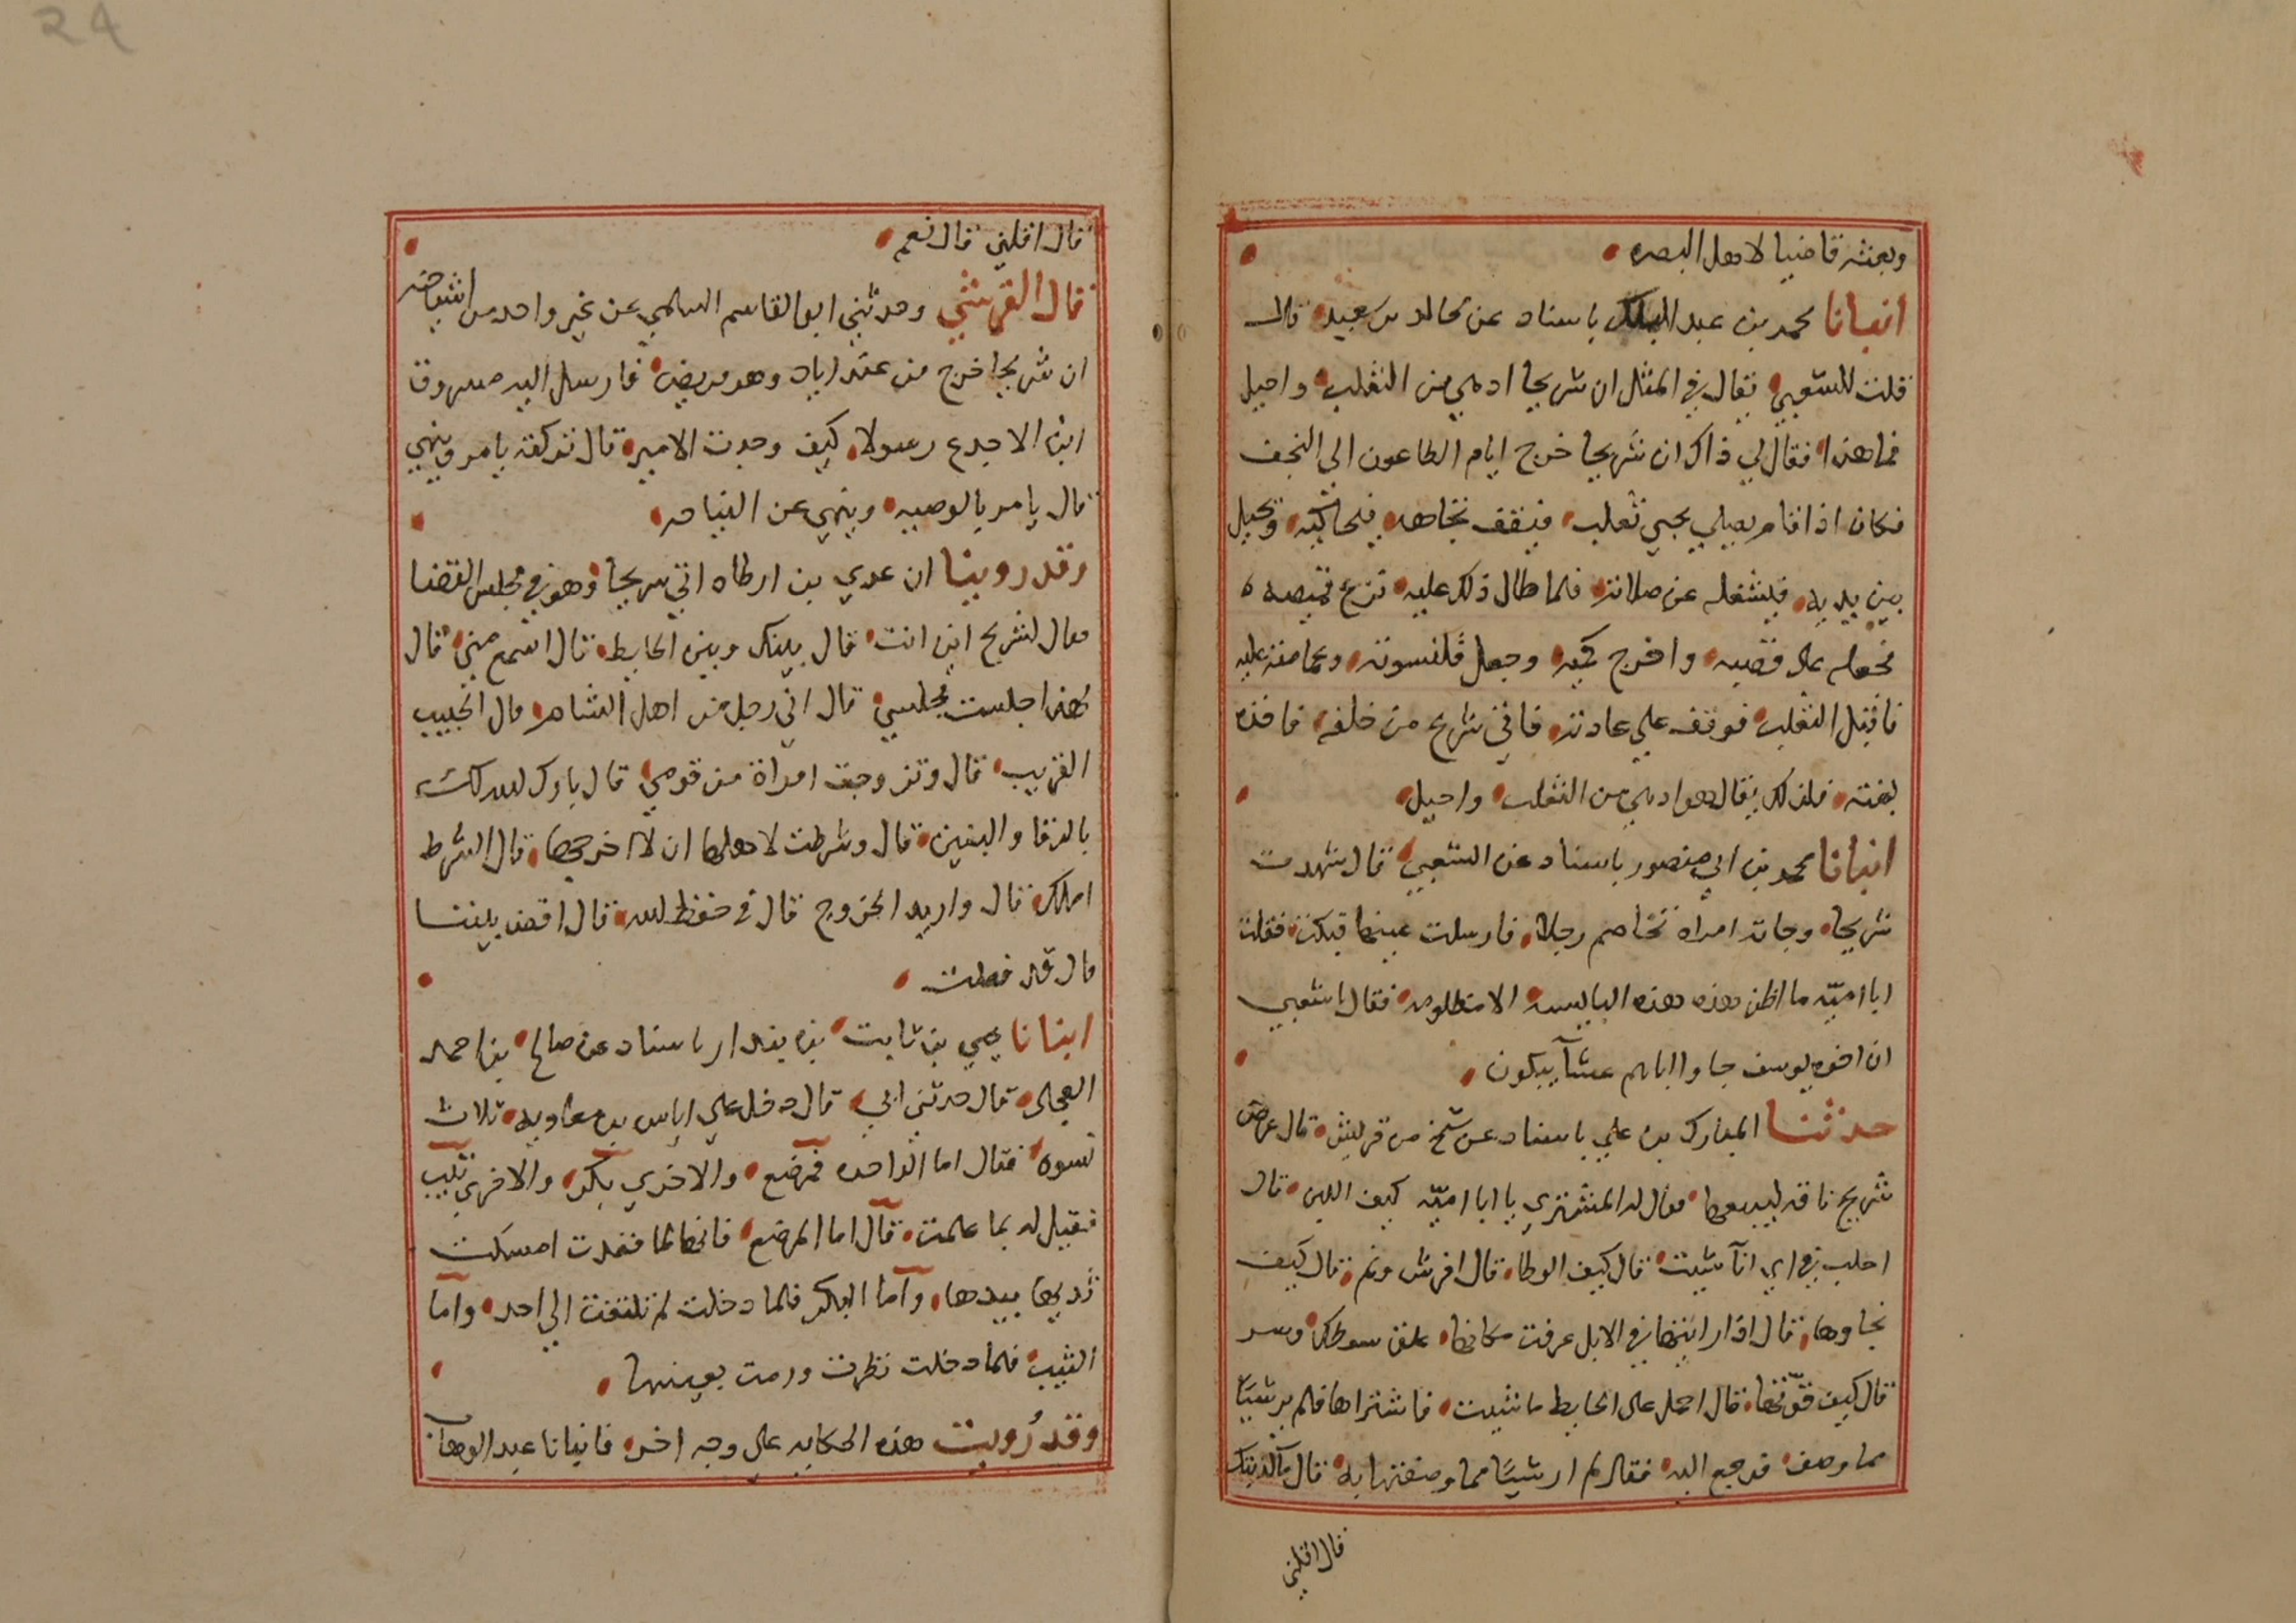 وبعثه قاضيا لاهل البصره
انبانا محمد بن عبد الملك باسناد عن مجالد بن سعيد قال
قلت للشعبي يقال في المثل ان شريحا ادهي من الثعلب واحيل
فما هذا فقال لي ذاك ان شريحا خرج ايام الطاعون الي النجف
فكان اذا قام يصلي يجي ثعلب فيقف تجاهه فيحاكيه ويخيل
بين يديه فيشغله عن صلاته فلما طال ذلك عليه نزع قميصه
فجعله على قصبه واخرج كميه وجعل قلنسوته وعمامته عليه
فاقبل الثعلب فوقف علي عادته فاتي شريح من خلفه فاخذه
بغتة فلذلك يقال هو ادهي من الثعلب واحيل
انبانا محمد بن ابي منصور باسناد عن الشعبي قال شهدت
شريحا وجاته امراه تخاصم رجلا فارسلت عينها فبكت فقلت
ابا اميّه ما اظن هذه هذه البايسه الا مظلومه فقال يا شعبي
ان اخوه يوسف جاوا اباهم عشآ يبكون
حدثنا المبارك بن علي باسناد عن شيخ من قريش قال عرض
شريح ناقه ليبيعها فقال له المشتري يا ابا اميّه كيف اللبن قال
احلب في اي انآ شيت قال كيف الوطا قال افرش ونم قال كيف
نجاوها قال اذا رايتها في الابل عرفت مكانها علق سوطك وسر
قال كيف قوّتها قال احمل على الحايط ما شيت فاشتراها فلم ير شيّا
مما وصف فرجع اليه فقال لم ار شيّا مما وصفتها به قال ما كذبتك
قال اقلني
24
قال اقلني قال نعم
قال القرشي وحدثني ابو القاسم السلمي عن غير واحد من اشياخه
ان شريحا خرج من عند زياد وهو مريض فارسل اليه مسروق
ابن الاجدع رسولا كيف وجدت الامير قال تركته يامر وينهي
قال يامر بالوصيه وينهي عن النياحه
وقد روينا ان عدي بن ارطاه اتي شريحا وهو في مجلس القضا
فقال لشريح اين انت قال بينك وبين الحايط قال اسمع مني قال
لهذا جلست مجلسي قال اني رجل من اهل الشام قال الحبيب
القريب قال وتزوجت امراة من قومي قال بارك الله لك
بالرفا والبنين قال وشرطت لاهلها ان لا اخرجها قال الشرط
املك قال واريد الخروج قال في حفظ الله قال اقض بيننا
قال قد فعلت
انبانا يحيي بن ثابت بن بندار باسناد عن صالح بن احمد
العجلي قال حدثني ابي قال دخل علي اياس بن معاويه ثلاث
نسوه فقال اما الواحده فمرضع والاخري بكر والاخري ثيب
فقيل له بما علمت قال اما المرضع فانها لما قعدت امسكت
ثديها بيدها واما البكر فلما دخلت لم تلتفت الي احد واما
الثيب فلما دخلت نظرت ورمت بعينها
وقد رُويت هذه الحكايه على وجه اخر فانبانا عبد الوهاب